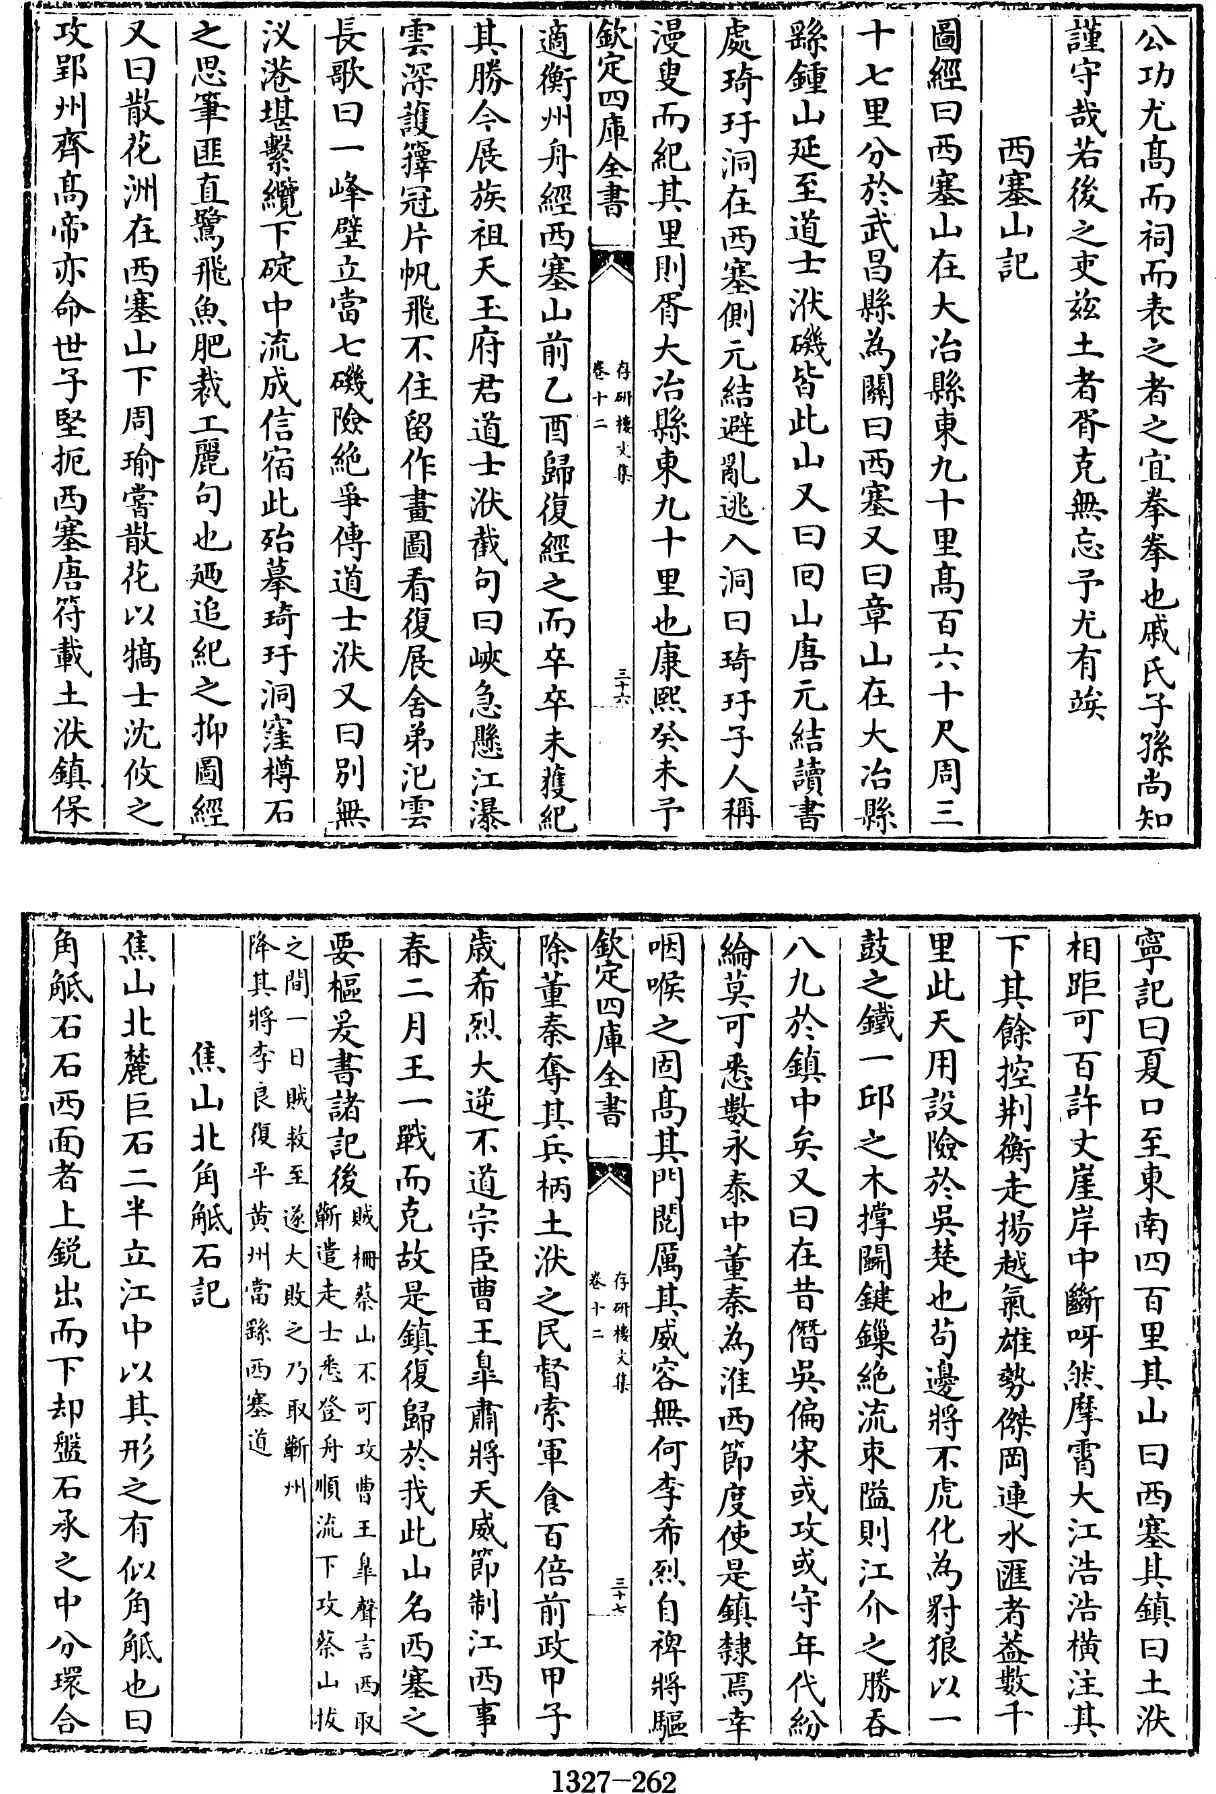 公功尤髙而祠而表之者之宜拳拳也戚氏子孫尚知
謹守哉若後之吏兹土者胥克無忘予尤有竢
西塞山記
圖經曰西塞山在大冶縣東九十里髙百六十尺周三
十七里分於武昌縣為關曰西塞又曰章山在大冶縣
縣鍾山延至道士洑磯皆此山又曰囘山唐元結讀書
處琦玗洞在西塞側元結避亂逃入洞曰琦玗子人稱
漫叟而紀其里則胥大冶縣東九十里也康熙癸未予
欽定四庫全書
存研樓文集
卷十二
三十六
適衡州舟經西塞山前乙酉歸復經之而卒卒未獲紀
其勝今展族祖天玉府君道士洑截句曰峽急懸江瀑
雲深護籜冠片帆飛不住留作畫圖看復展舍弟汜雲
長歌曰一峰壁立當七磯險絶爭傳道士洑又曰別無
汊港堪繫纜下碇中流成信宿此殆摹琦玗洞窪樽石
之思筆匪直鷺飛魚肥裁工麗句也廼追紀之抑圖經
又曰散花洲在西塞山下周瑜嘗散花以犒士沈攸之
攻郢州齊髙帝亦命世子堅扼西塞唐符載土洑鎮保
寧記曰夏口至東南四百里其山曰西塞其鎮曰土洑
相距可百許丈崖岸中斷呀然摩霄大江浩浩横注其
下其餘控荆衡走揚越氣雄勢傑岡連水匯者葢數千
里此天用設險於吳楚也苟邊將不虎化為豺狼以一
鼓之鐵一邱之木撑關鍵鏁絶流束隘則江介之勝呑
八九於鎮中矣又曰在昔僭吳偏宋或攻或守年代紛
綸莫可悉數永泰中董秦為淮西節度使是鎮隸焉幸
咽喉之固髙其門閲厲其威容無何李希烈自裨將驅
欽定四庫全書
存研樓文集
卷十二
三十七
除董秦奪其兵柄土洑之民督索軍食百倍前政甲子
歲希烈大逆不道宗臣曹王臯肅將天威節制江西事
春二月王一戰而克故是鎮復歸於我此山名西塞之
要樞爰書諸記後賊柵蔡山不可攻曹王臯聲言西取
蘄遣走士悉登舟順流下攻蔡山拔
之間一日賊救至遂大敗之乃取蘄州
降其將李良復平黄州當縣西塞道
焦山北角觝石記
焦山北麓巨石二半立江中以其形之有似角觝也曰
角觝石石西面者上銳出而下却盤石承之中分環合
1327-262